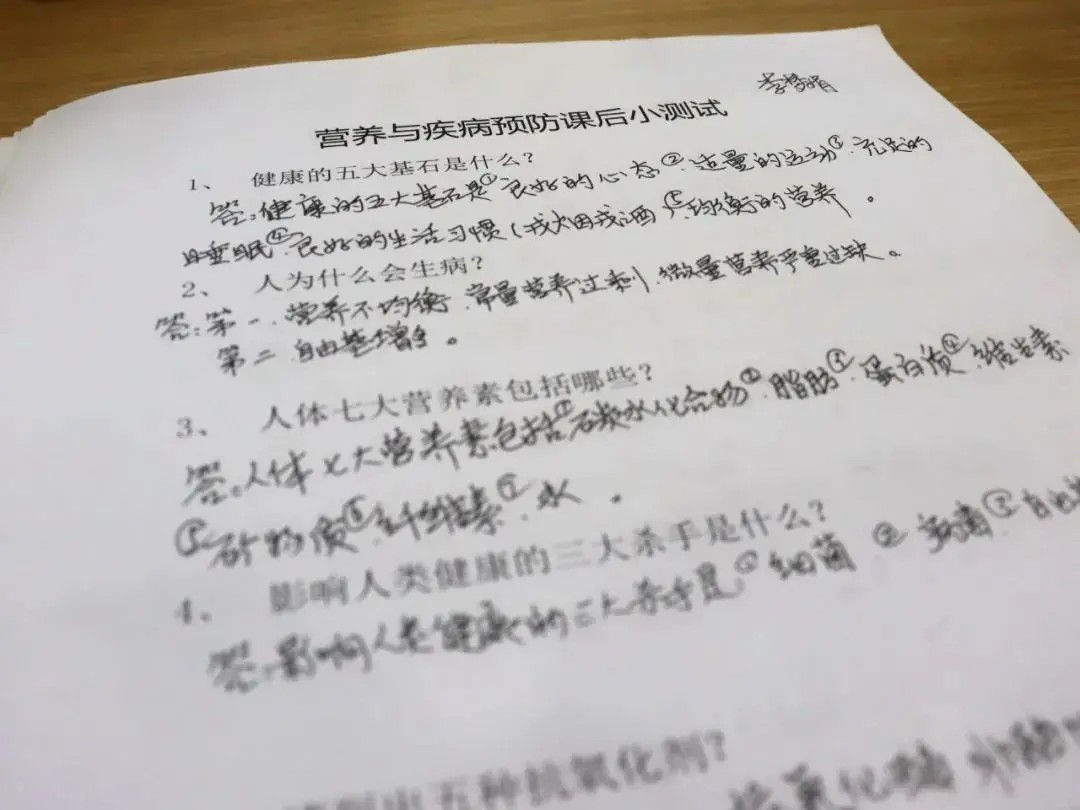 李梦娟
营养与疾病预防课后小测试
1、 健康的五大基石是什么?
答:健康的五大基石是①良好的心态②适量的运动③充足的
睡眠④良好的生活习惯(戒烟戒酒)⑤均衡的营养。
2、 人为什么会生病?
答:第一、营养不均衡、常量营养过剩、微量营养严重过缺。
第二、自由基增多。
3、 人体七大营养素包括哪些?
答:人体七大营养素包括①碳水化合物②脂肪③蛋白质④维生素
⑤矿物质⑥纤维素⑦水。
4、 影响人类健康的三大杀手是什么?
答:影响人类健康的三大杀手是①细菌②病毒③自由
出五种抗氧化剂?
氧化